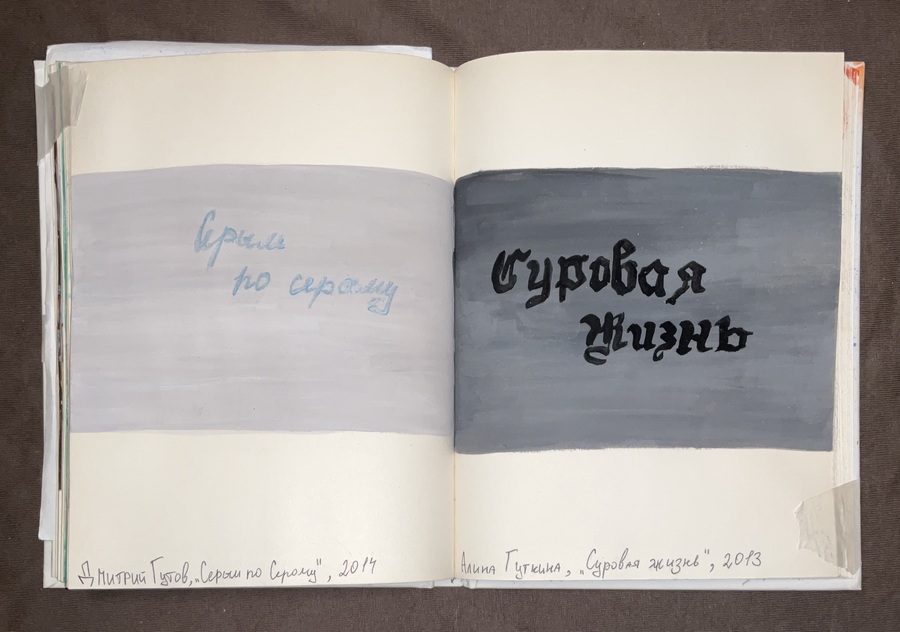 Серым
по серому
Дмитрий Гутов, „Серым по Серому", 2014
Суровая
Жизнь
Алина Гуткина, „Суровая жизнь", 2013